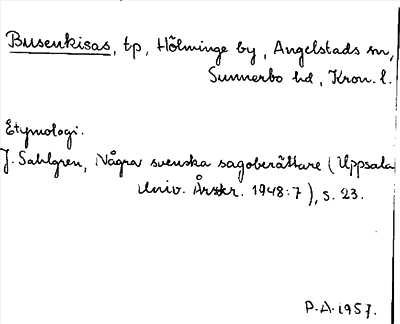 Busenkisas, tp, Hölminge by, Angelstads sn,
Sunnerbo hd, Kron. l.
Etymologi.
J. Sahlgren, Några svenska sagoberättare (Uppsala
Univ. Årsskr. 1948:7), s. 23.
P.A. 1957.